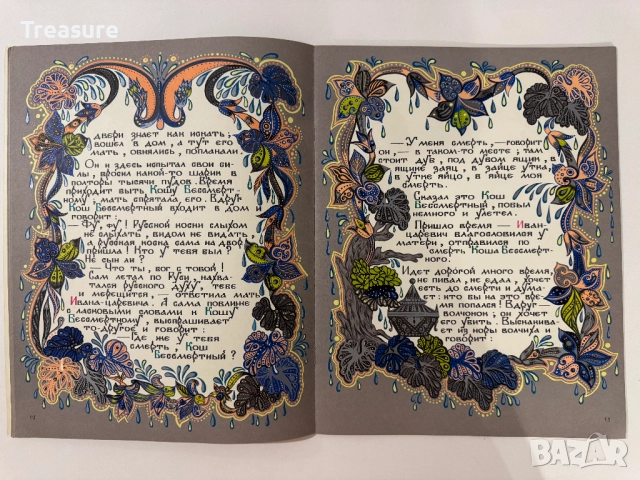 Treasure
двери знает как искать;
вошел в дом, а тут его
мать, обнялись, поплакали
Он и здесь испытал свои си-
лы, бросил какой-то шарик в
полторы тысячи пудов. Время
приходит быть Кошу Бессмерт-
ному; мать спрятала его. Вдруг
Кош Бессмертный входит в дом и
говорит:
— Фу, фу! Русской коски слыхом
не слыхать, видом не видать,
а русская коска сама на двор
пришла! Кто у тебя был?
Не сын ли?
— Что ты, бог с тобой!
Сам летал по Руси, нахва-
тался русского духу, тебе
и мерещится, — ответила мать
Ивана-царевича. А сама поближе
с ласковыми словами к Кошу
Бессмертному, выспрашивает
то-другое и говорит:
— Где же у тебя
смерть, Кош
Бессмертный?
— У меня смерть, — говорит
он, — в таком-то месте; там
стоит дуб, под дубом ящик, в
ящике заяц, в зайце утка,
в утке яйцо, в яйце моя
смерть.
Сказал это Кош
Бессмертный, побыл
немного и улетел.
Пришло время — Иван-
царевич благословился у
матери, отправился по
смерть Коша Бессмерт-
ного.
Идет дорогой много время,
не пивал, не едал, хочет
есть до смерти и дума-
ет: кто бы на это вре-
мя попался! Вдруг —
волчонок; он хочет
его убить. Выскакива-
ет из норы волчиха
говорит:
11
BAZAR